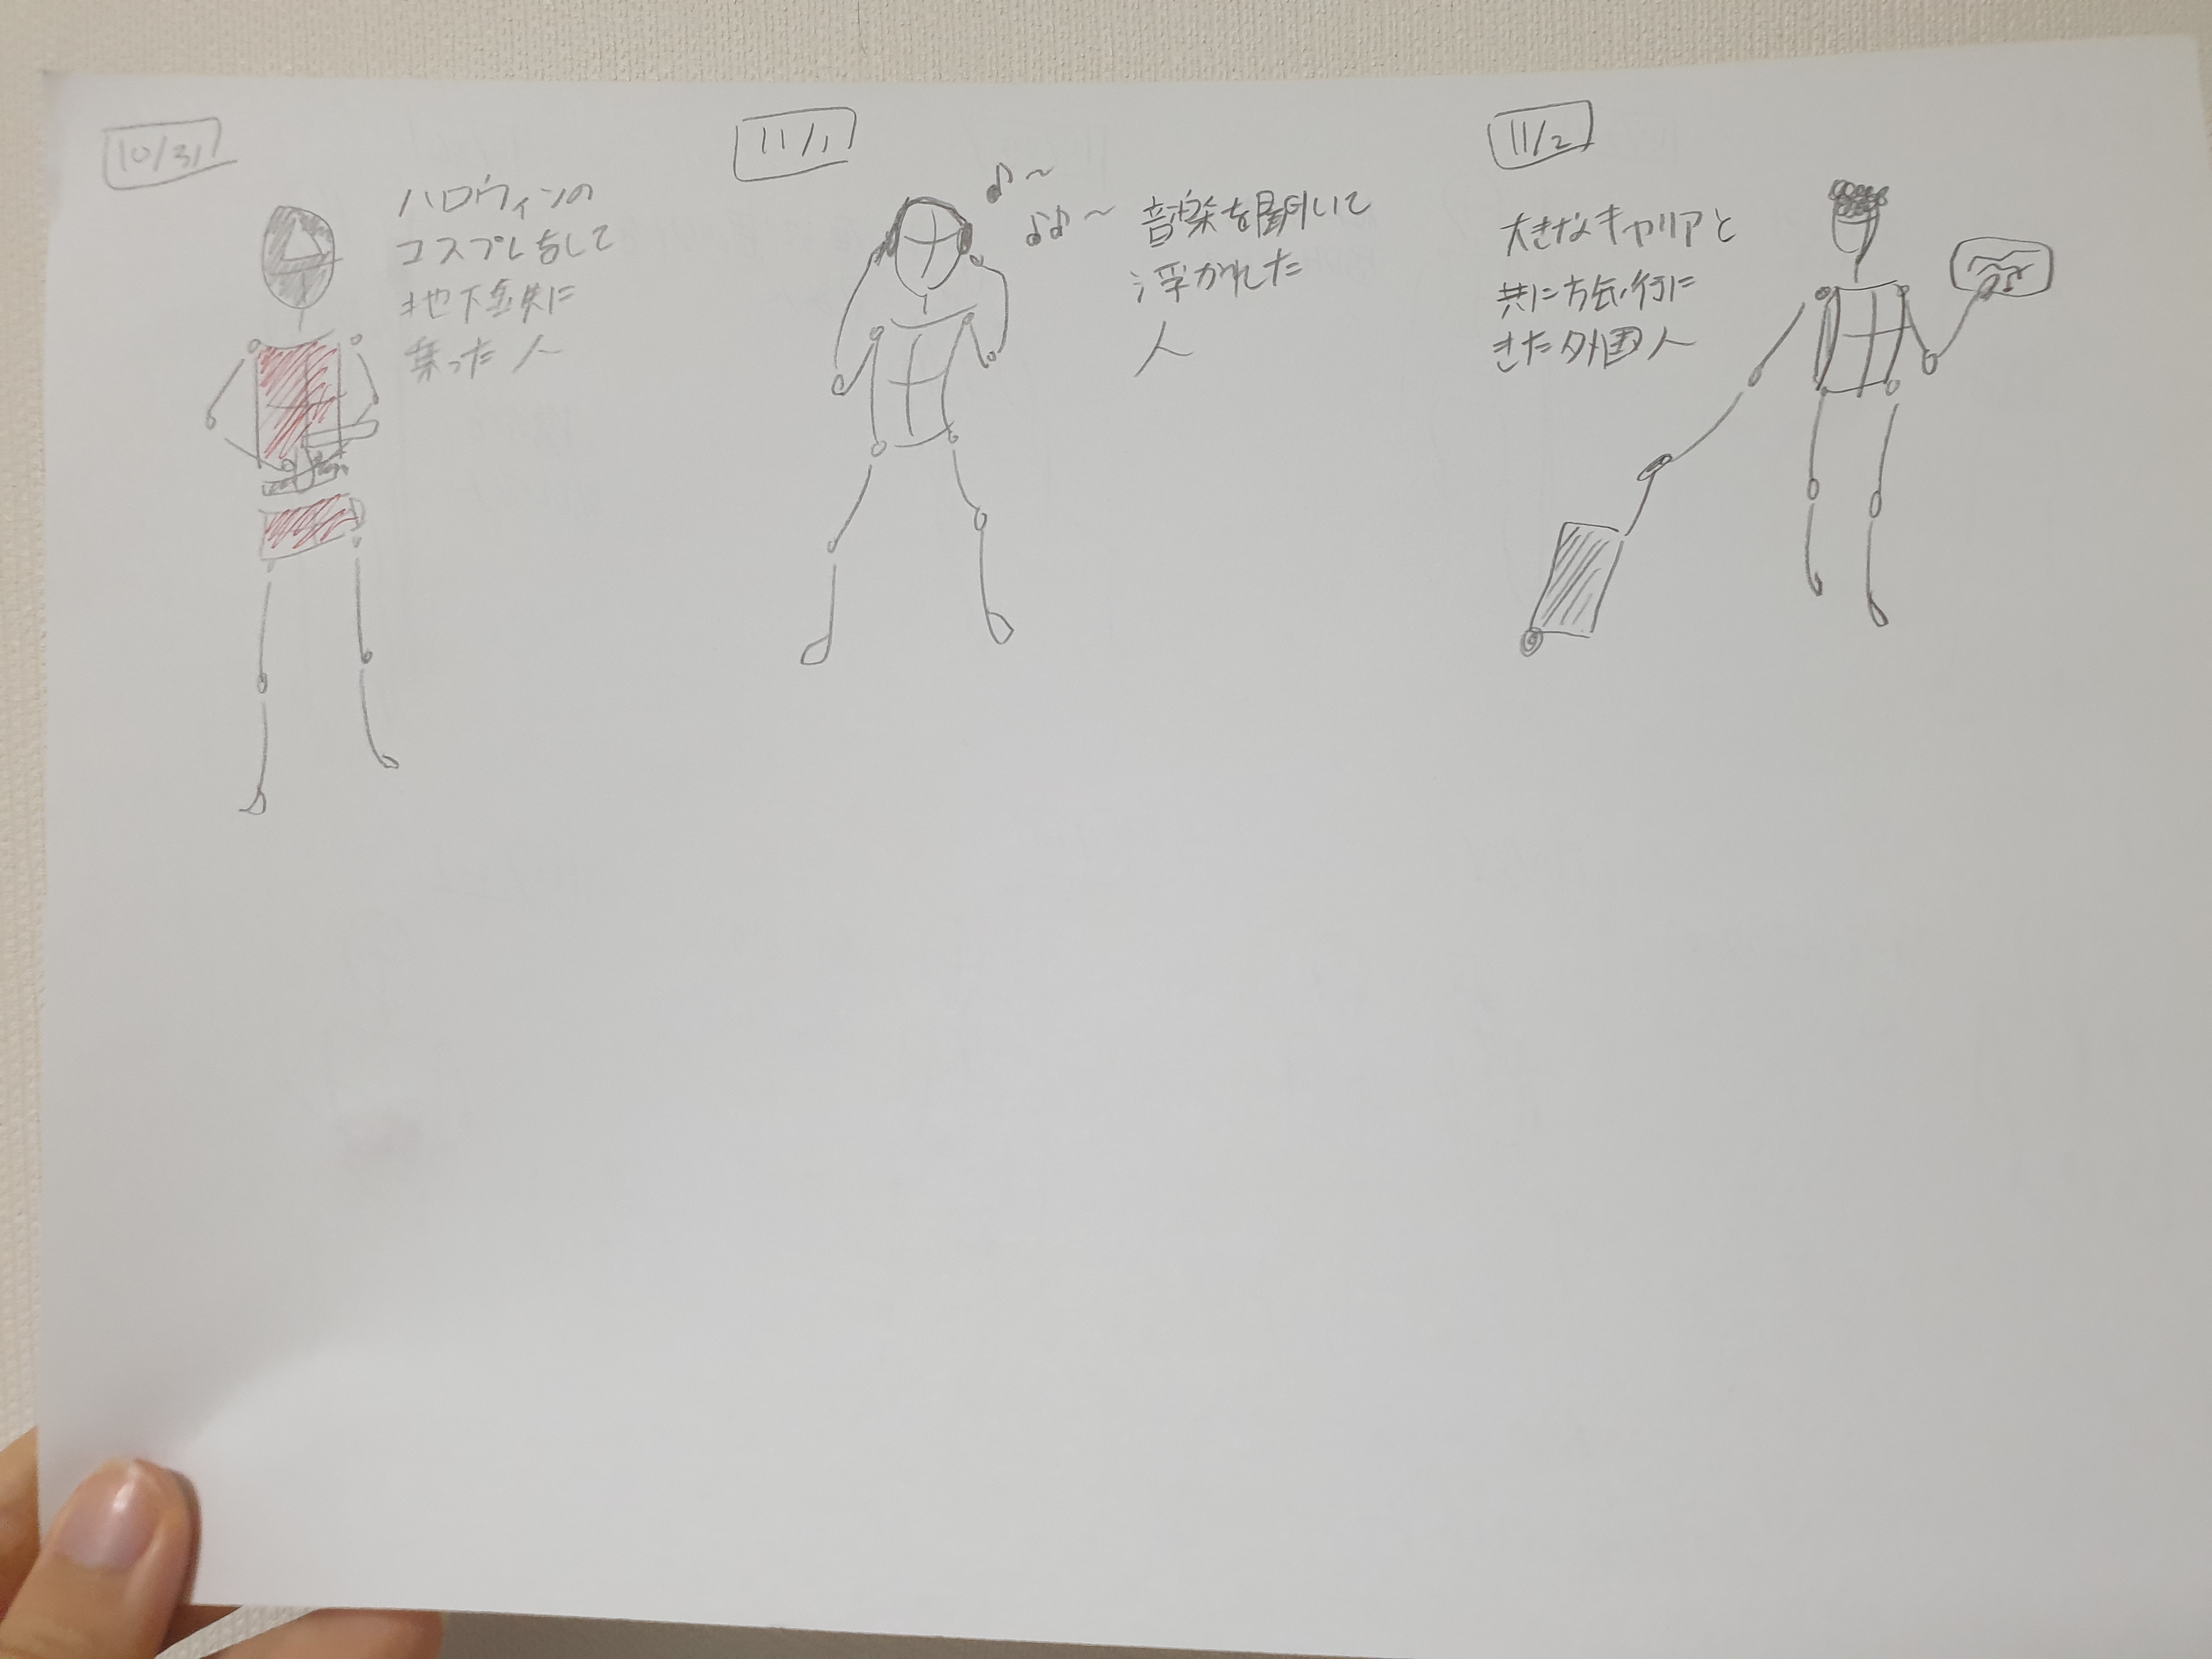 10/31
ハロウィンの
コスプレをして
地下鉄に
乗った人
11/1
音楽を聞いて
浮かれた
人
11/2
大きなキャリアと
共に旅行に
きた外国人